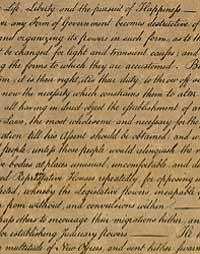 Life, Liberty and the pursuit of Happiness.—
any Form of Government becomes destructive of
and organizing its powers in such form, as to
be changed for light and transient causes; and
the forms to which they are accustomed.
it is their right, it is their duty, to throw off
the necessity which constrains them to alter
all having in direct object the establishment of
Laws, the most wholesome and necessary for the
till his Assent should be obtained; and
People, unless those people would relinquish the
bodies at places unusual, uncomfortable, and
Representative Houses repeatedly, for opposing
whereby the Legislative powers, incapable
from without, and convulsions within.—
others to encourage their migrations hither, and
for establishing Judiciary powers.— He
multitude of New Offices, and sent hither swarms